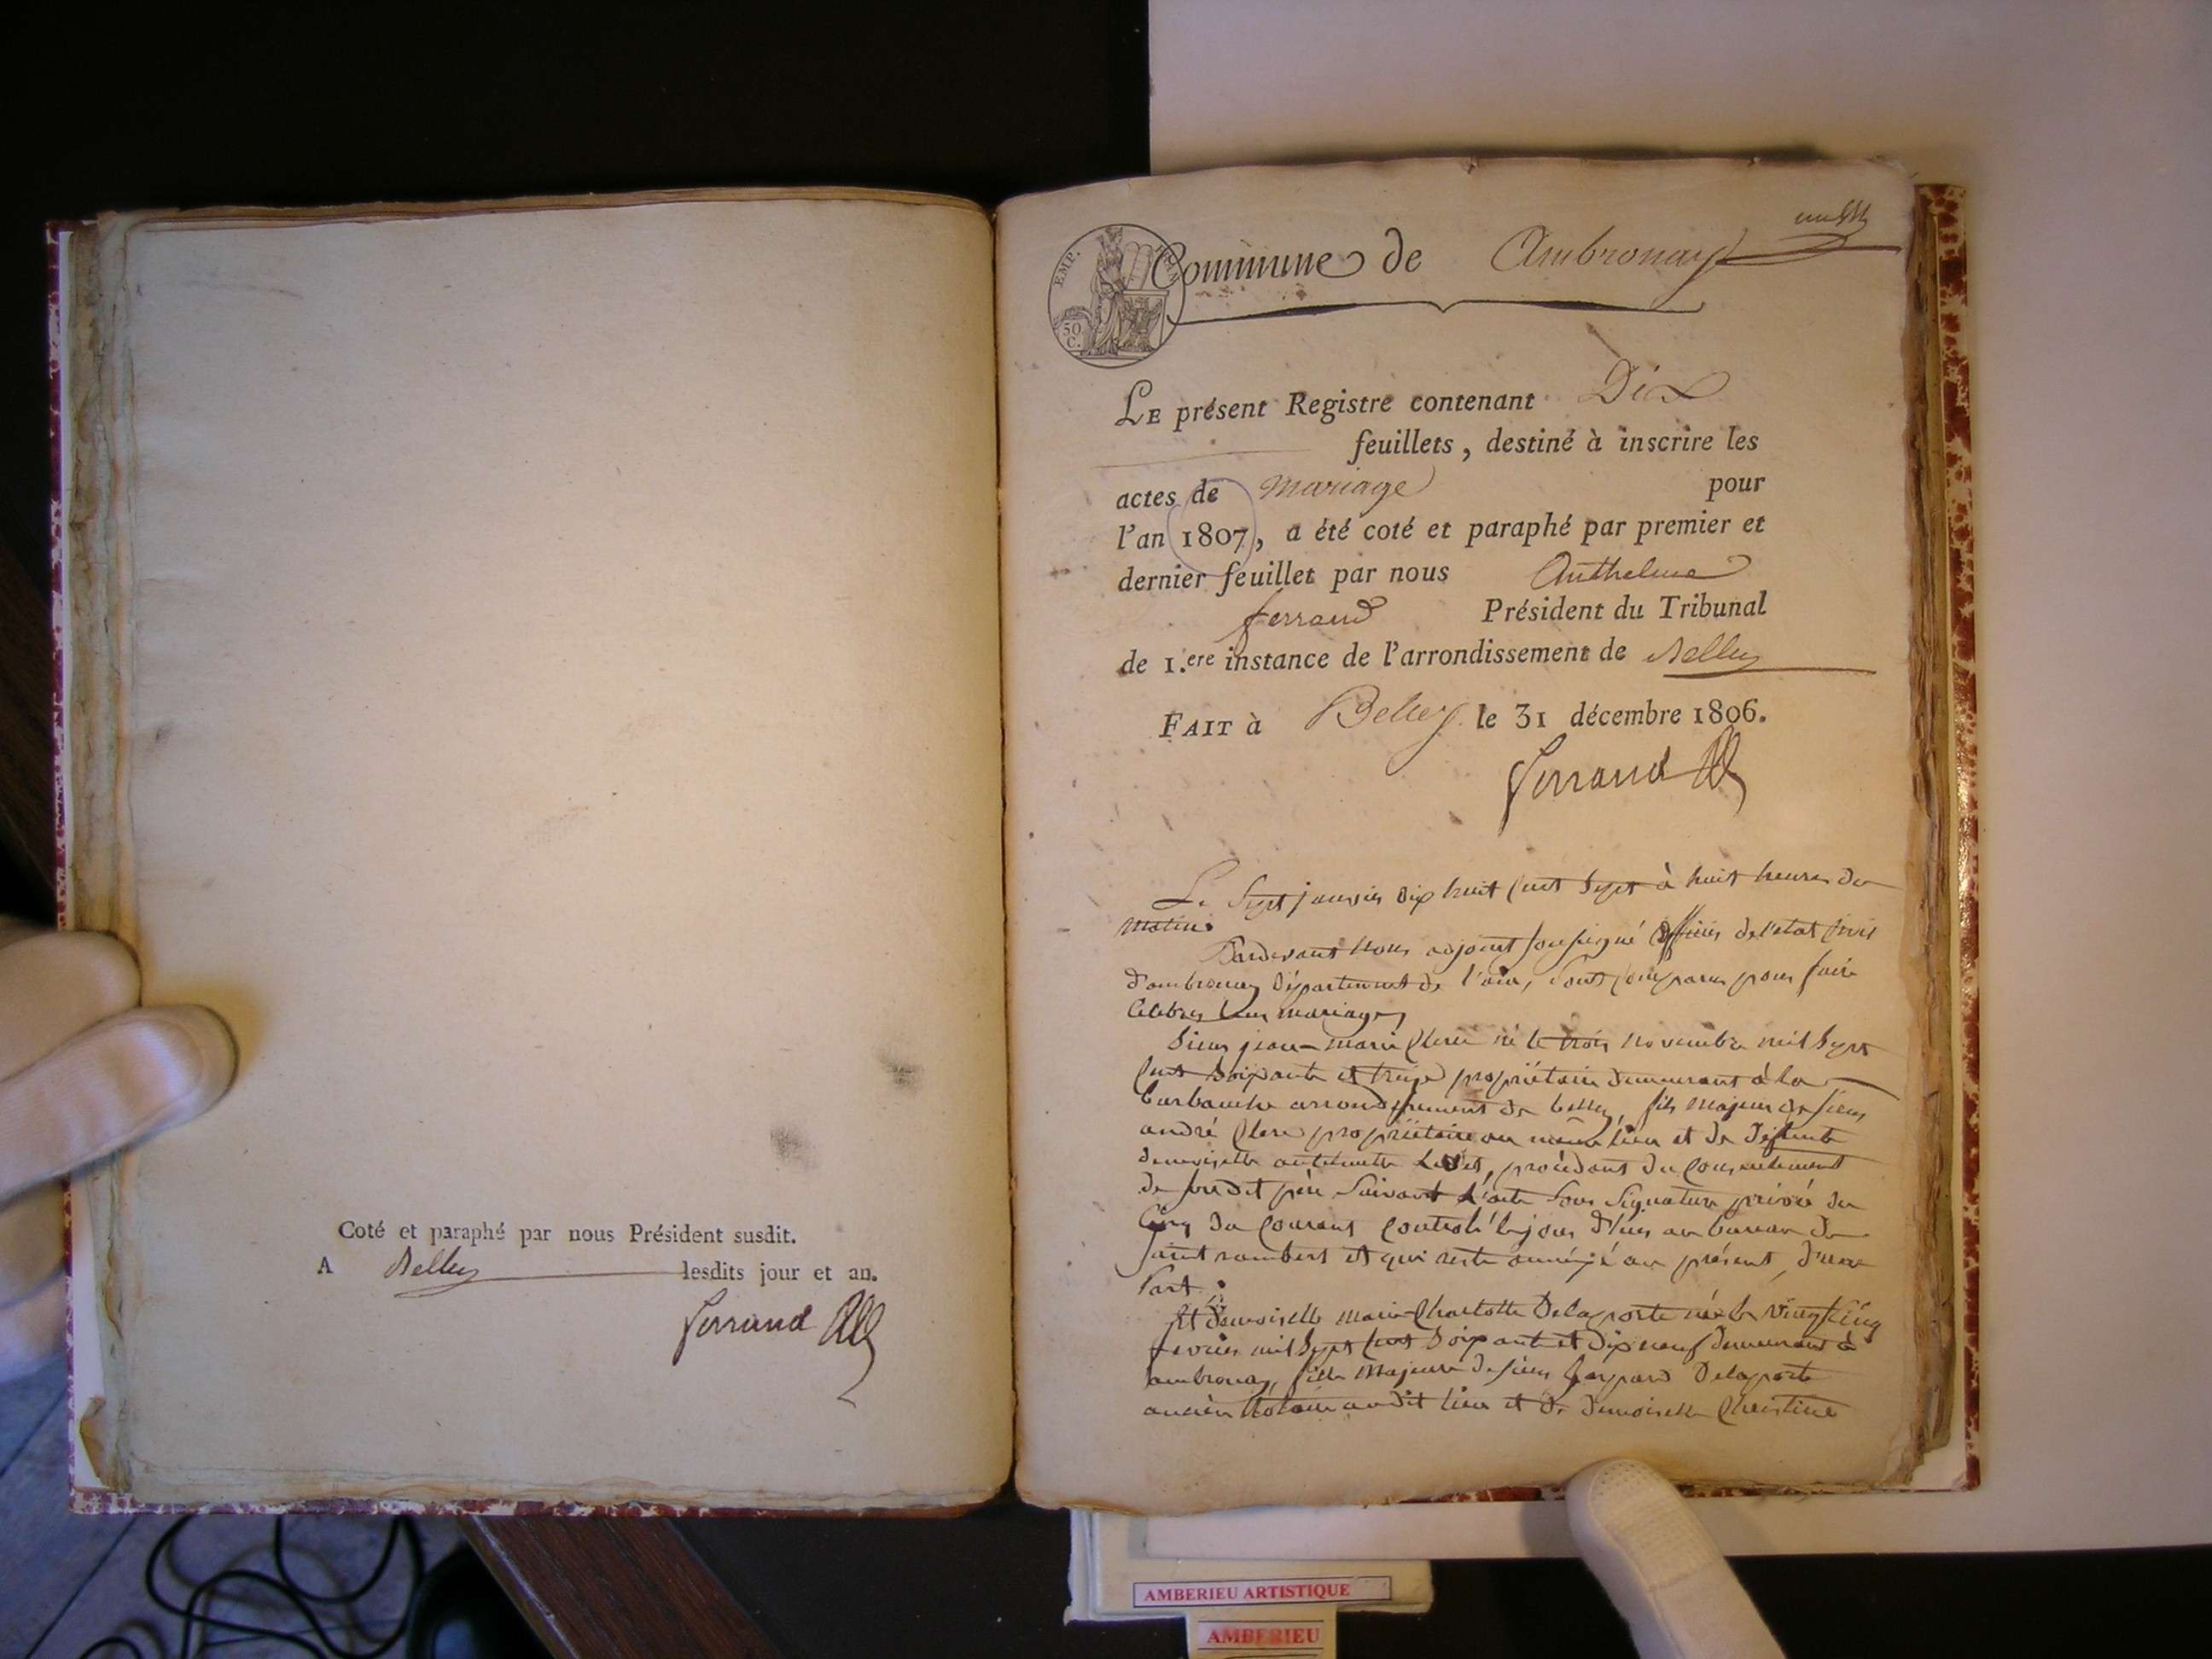 Coté et paraphé par nous Président susdit.
A Belley lesdits jour et an.
Ferrand
EMP.
50
C.
Commune de Ambronay
LE présent Registre contenant Dix
feuillets, destiné à inscrire les
actes de mariage pour
l'an 1807, a été coté et paraphé par premier et
dernier feuillet par nous Anthelme
ferrand Président du Tribunal
de 1.ere instance de l'arrondissement de Belley
FAIT à Belley le 31 décembre 1806.
Ferrand
Le Sept janvier dix huit Cent Sept à huit heures du
matin.
Pardevant Nous adjoint soussigné officier de l'etat Civil
d'ambronay département de l'ain, sont comparus pour faire
Celebrer leur mariage,
Sieur jean-marie Clerc né le trois novembre mil Sept
Cent Soixante et treize propriétaire demeurant à la
burbanche arrondissement de belley, fils majeur de sieur
andré Clerc propriétaire au même lieu et de défunte
demoiselle procédant du Consentement
de son dit père Suivant l'acte Sous Signature privée du
Cinq du Courant Controlé le jour d'hier au bureau de
saint rambert et qui reste annéxé au présent, d'une
Part;
Et demoiselle marie Charlotte Delaporte née le vingt cinq
fevrier mil Sept Cent Soixante et dix neuf demeurant à
ambronay, fille majeure de sieur gaspard Delaporte
ancien Notaire audit lieu et de demoiselle Christine
AMBERIEU ARTISTIQUE
AMBERIEU